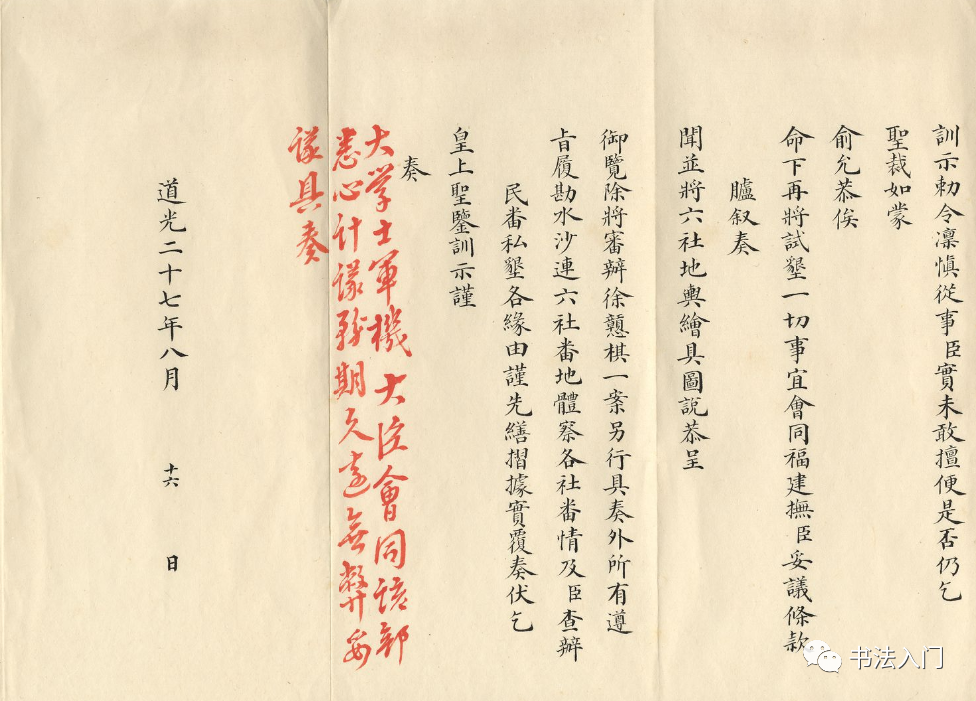 訓示勅令凛慎從事臣實未敢擅便是否仍乞
聖裁如蒙
俞允恭俟
命下再將試墾一切事宜會同福建撫臣妥議條款
臚叙奏
聞並將六社地輿繪具圖說恭呈
御覽除將審辦徐戇棋一案另行具奏外所有遵
旨履勘水沙連六社番地體察各社番情及臣查辦
民番私墾各緣由謹先繕摺據實覆奏伏乞
皇上聖鑒訓示謹
奏
大学士軍機大臣會同該部
悉心計議務期久遠無弊妥
議具奏
道光二十七年八月 十六 日
书法入门